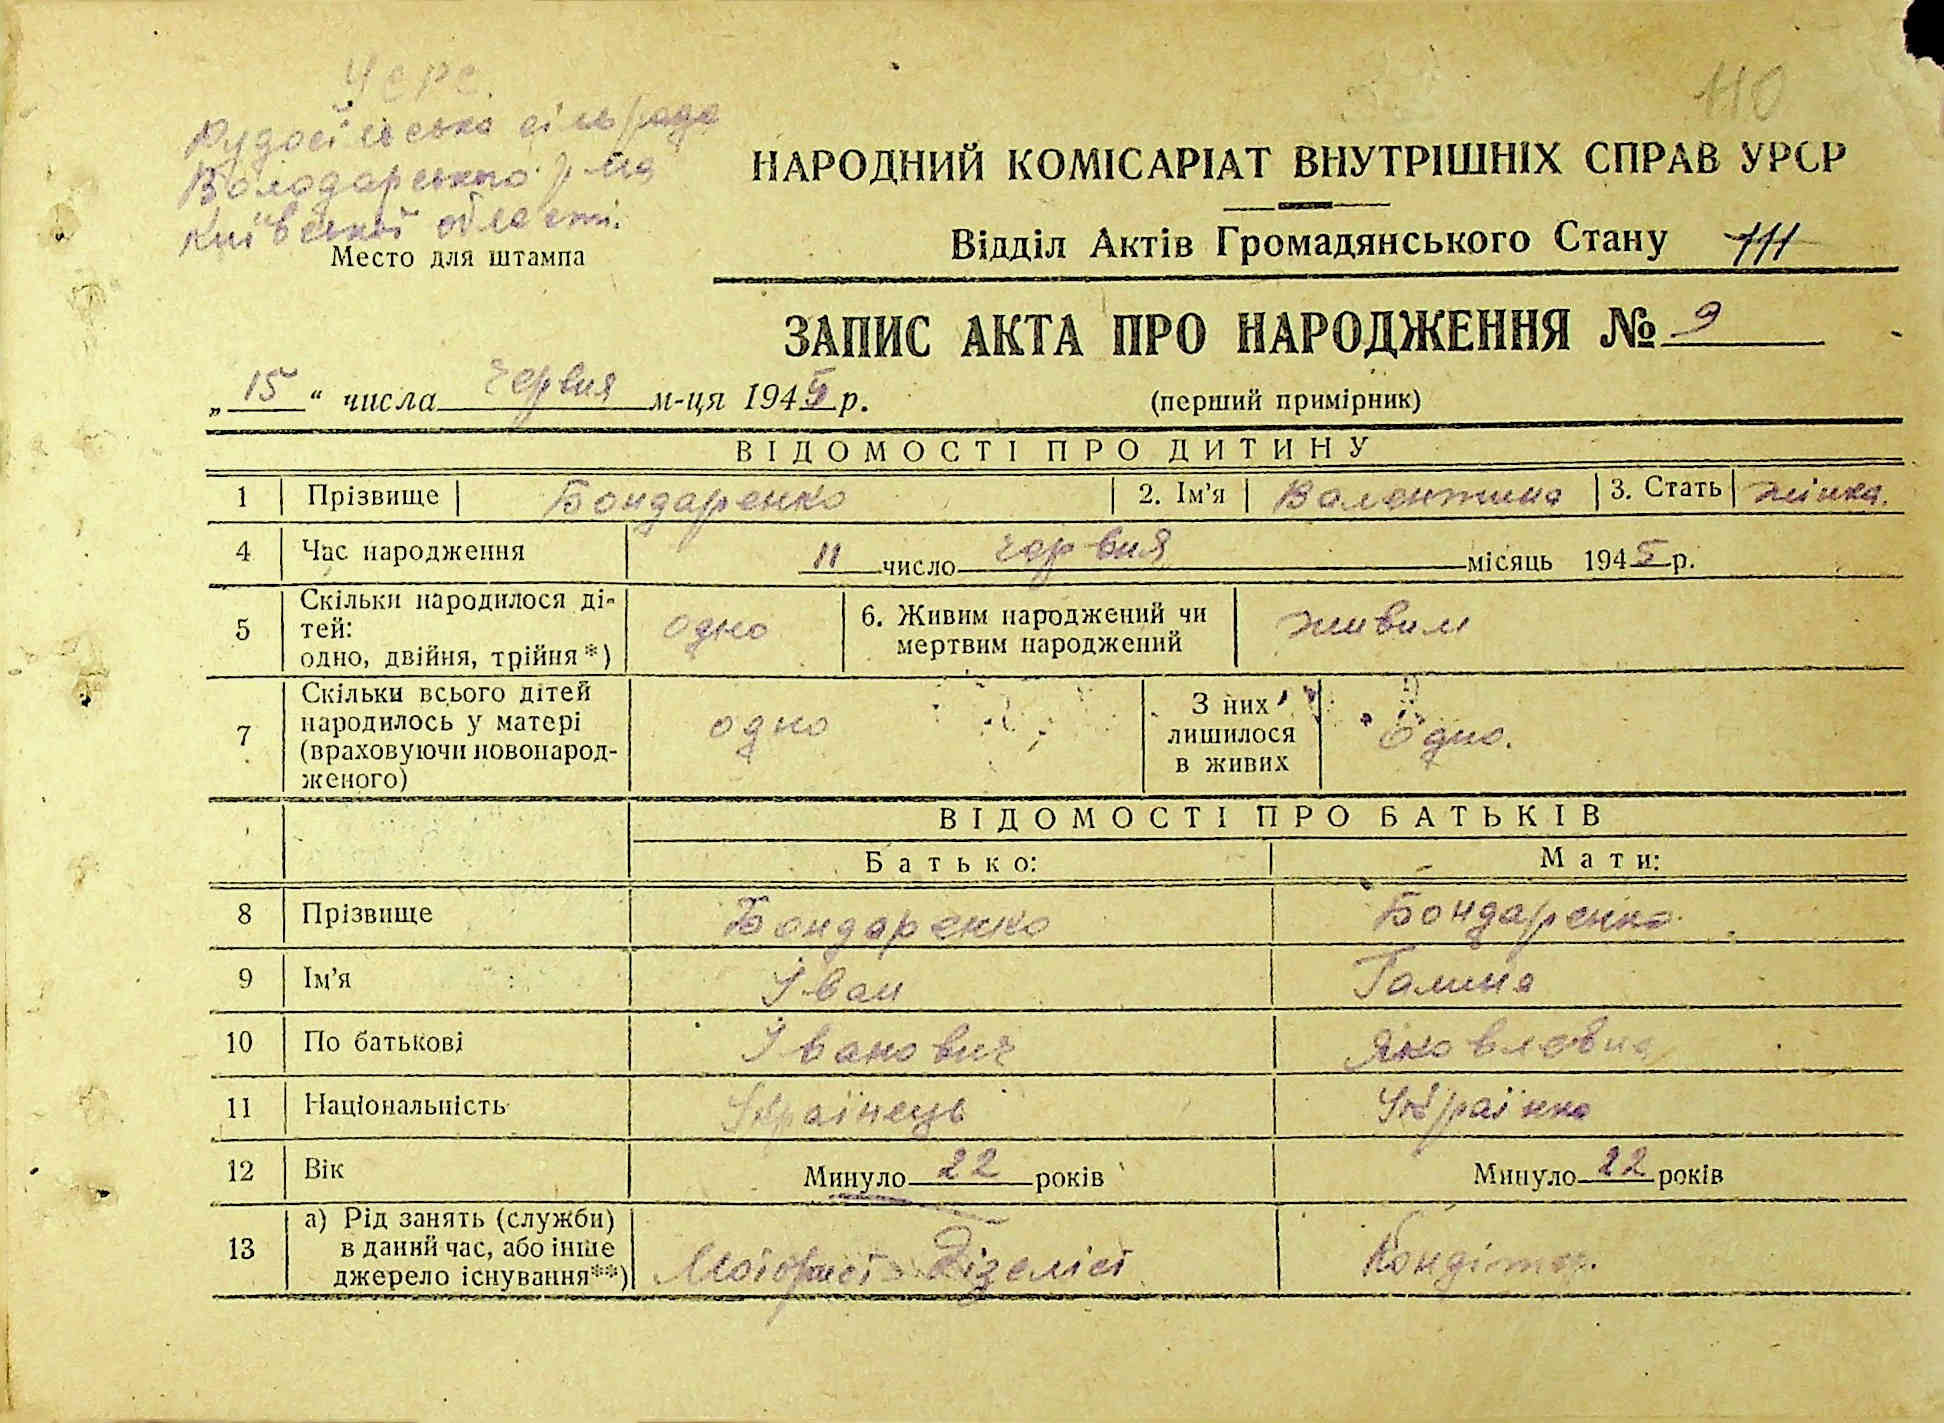 Чере
Рудосільська сільрада
Володарського р-на
Київської области.
Место для штампа
110
НАРОДНИЙ КОМІСАРІАТ ВНУТРІШНІХ СПРАВ УРСР
Відділ Актів Громадянського Стану 111
ЗАПИС АКТА ПРО НАРОДЖЕННЯ № 9
„15“ числа червня м-ця 1945 р. (перший примірник)
ВІДОМОСТІ ПРО ДИТИНУ
1 Прізвище Бондаренко 2. Ім'я Валентина 3. Стать жінка.
4 Час народження 11 число червня місяць 1945 р.
5 Скільки народилося ді-
тей:
одно, двійня, трійня*) одно 6. Живим народжений чи
мертвим народжений живим
7 Скільки всього дітей
народилось у матері
(враховуючи новонарод-
женого) одно З них
лишилося
в живих одно.
ВІДОМОСТІ ПРО БАТЬКІВ
Батько: Мати:
8 Прізвище Бондаренко Бондаренко
9 Ім'я Іван Галина
10 По батькові Іванович Яковловна
11 Національність Українець Українка
12 Вік Минуло 22 років Минуло 22 років
13 а) Рід занять (служби)
в даний час, або інше
джерело існування**) Моторист Дізеліст Кондітор.